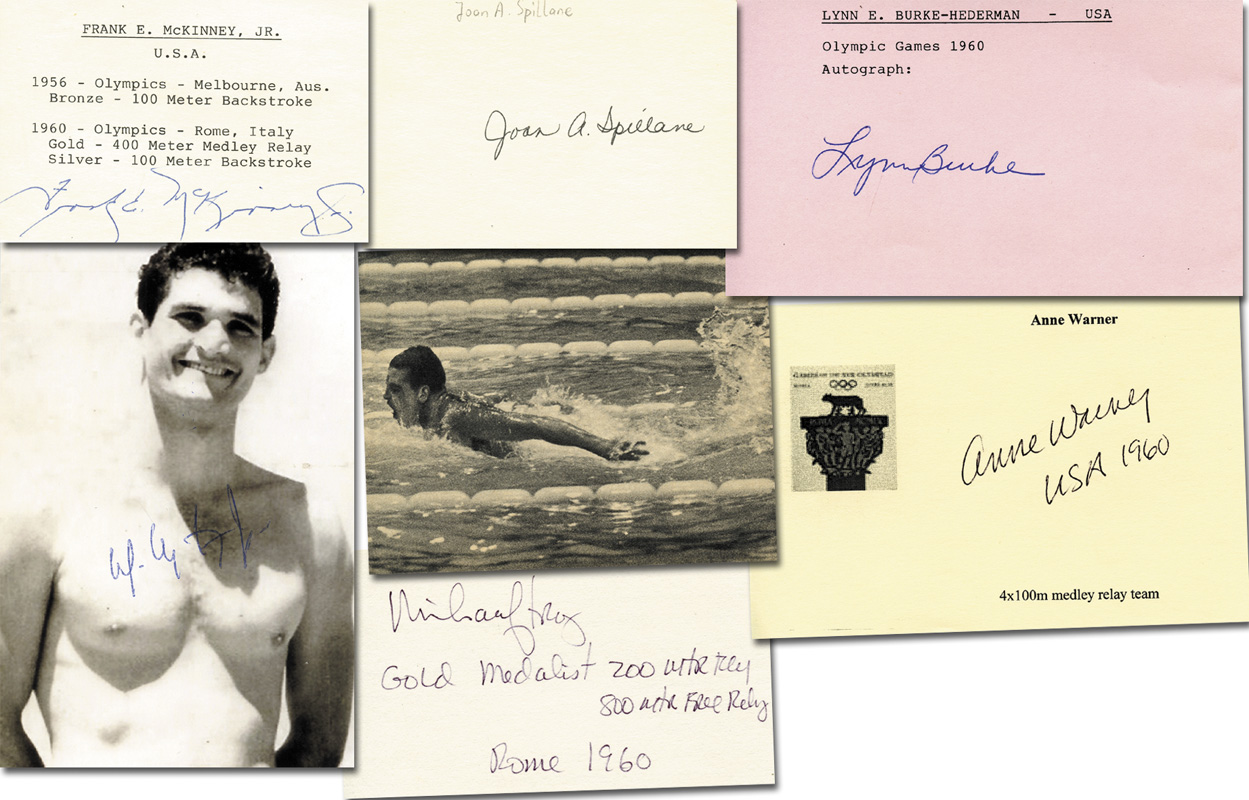 FRANK E. McKINNEY, JR.
U.S.A.
1956 - Olympics - Melbourne, Aus.
Bronze - 100 Meter Backstroke
1960 - Olympics - Rome, Italy
Gold - 400 Meter Medley Relay
Silver - 100 Meter Backstroke
Frank E. McKinney Jr.
Joan A. Spillane
Joan A. Spillane
LYNN E. BURKE-HEDERMAN - USA
Olympic Games 1960
Autograph:
Lynn Burke
Anne Warner
Anne Warner
USA 1960
4x100m medley relay team
Gold Medalist 200 mtr
800 mtr Free Relay
Rome 1960